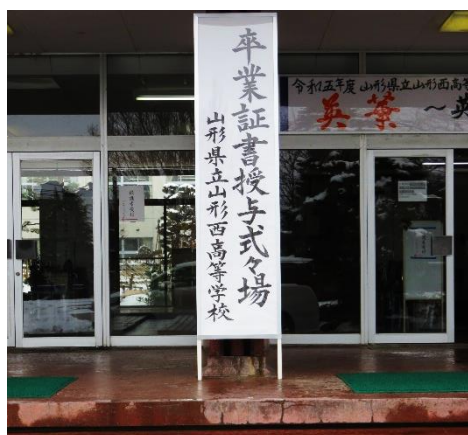 卒業証書授与式々場
山形県立山形西高等学校
令和五年度 山形県立山形西高等
英華 ～英